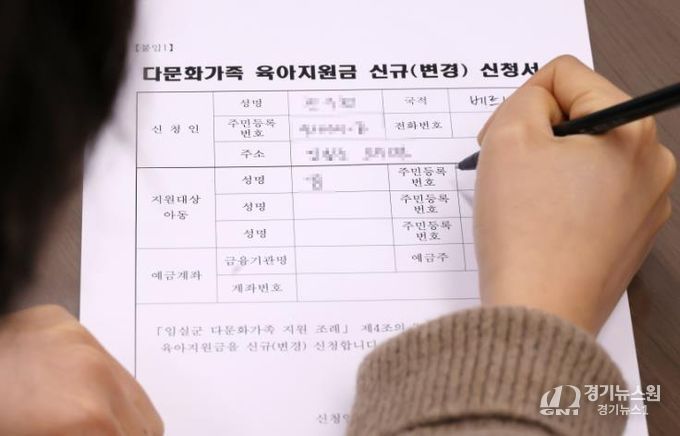 [붙임1]
다문화가족 육아지원금 신규(변경) 신청서
신 청 인
성명
국적
주민등록
번호
전화번호
주소
지원대상
아동
성명
주민등록
번호
성명
주민등록
번호
성명
주민등록
번호
예금계좌
금융기관명
예금주
계좌번호
「임실군 다문화가족 지원 조례」 제4조의
육아지원금을 신규(변경) 신청합니다
GNI
경기뉴스원
경기뉴스1